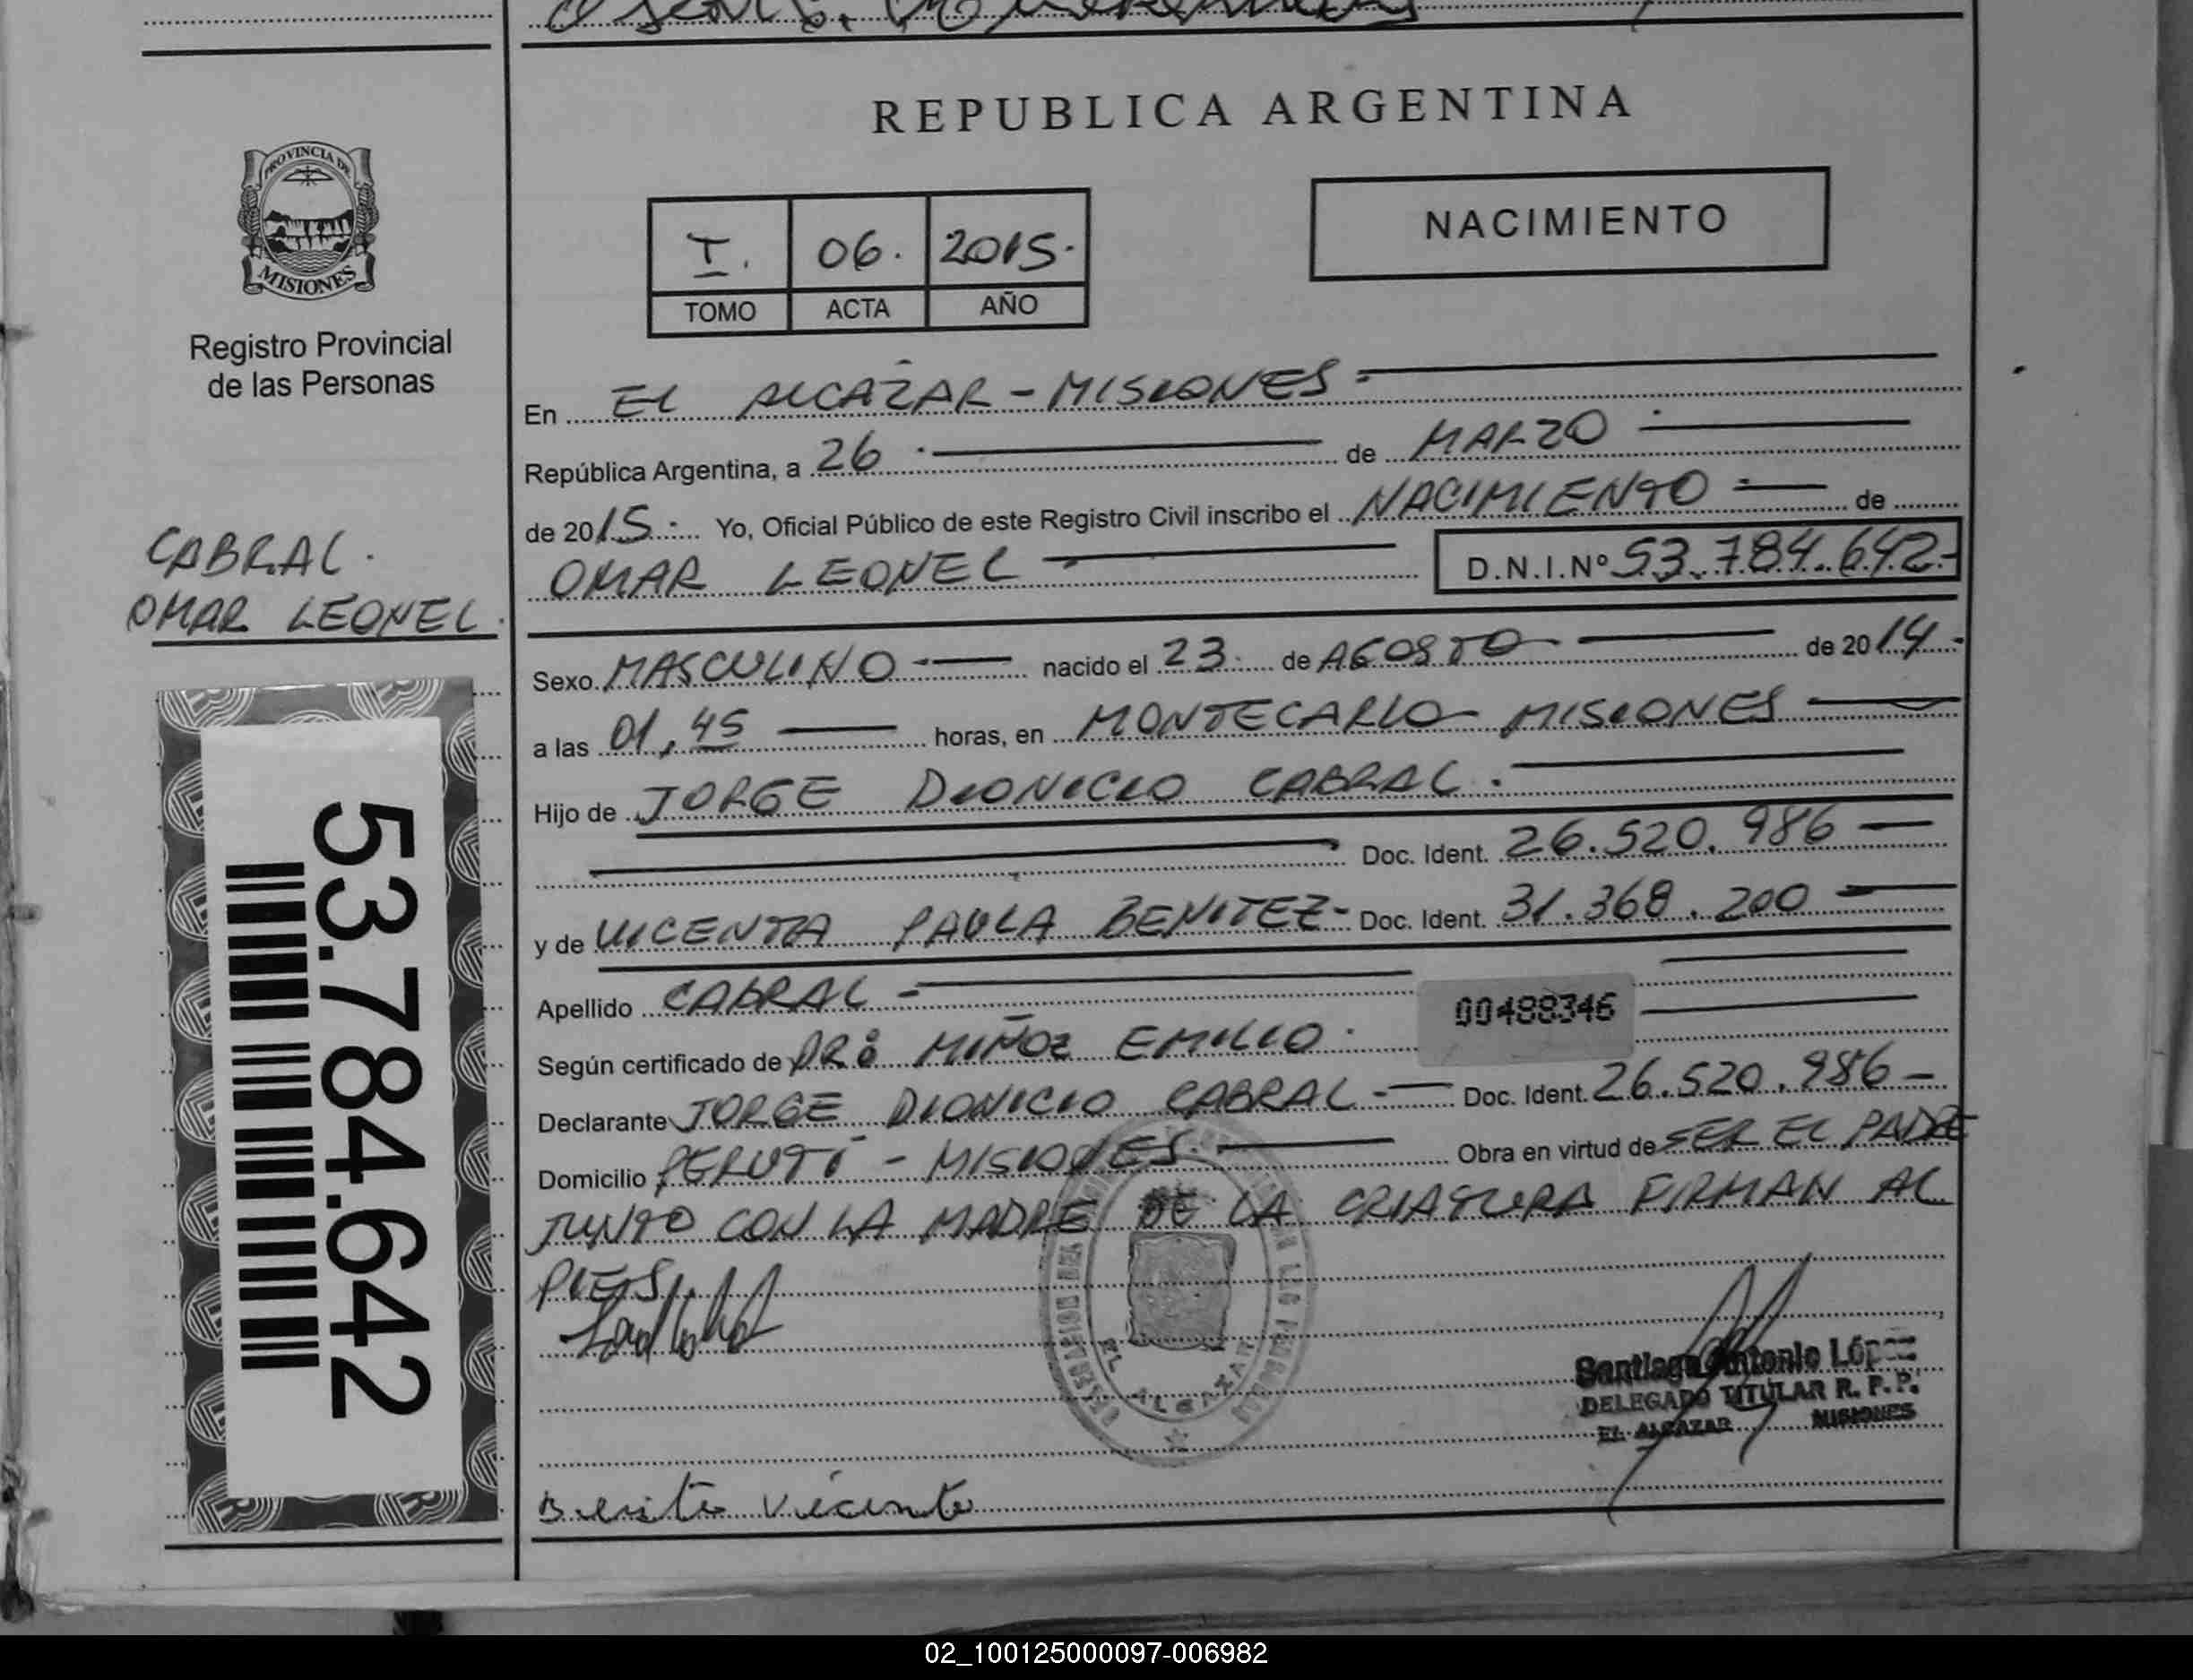 REPUBLICA ARGENTINA
PROVINCIA DE
MISIONES
Registro Provincial
de las Personas
I. 06. 2015.
TOMO ACTA AÑO
NACIMIENTO
En EL ALCAZAR - MISIONES
República Argentina, a 26 de MARZO
de 2015 Yo, Oficial Público de este Registro Civil inscribo el NACIMIENTO de
OMAR LEONEL D.N.I.Nº 53.784.642
CABRAL.
OMAR LEONEL.
Sexo MASCULINO nacido el 23 de AGOSTO de 2014
a las 01,45 horas, en MONTECARLO MISIONES
Hijo de JORGE DIONICIO CABRAL.
Doc. Ident. 26.520.986
y de VICENTA PAULA BENITEZ Doc. Ident. 31.368.200
Apellido CABRAL
00488346
Según certificado de DR: MIÑOZ EMILIO.
Declarante JORGE DIONICIO CABRAL Doc. Ident. 26.520.986
Domicilio PERUTÍ - MISIONES. Obra en virtud de SER EL PADRE
JUNTO CON LA MADRE DE LA CRIATURA FIRMAN AL
PIES
53.784.642
EL ALCAZAR
Santiago Antonio López
DELEGADO TITULAR R. P. P.
EL ALCAZAR MISIONES
Benite Vicenta
02_100125000097-006982